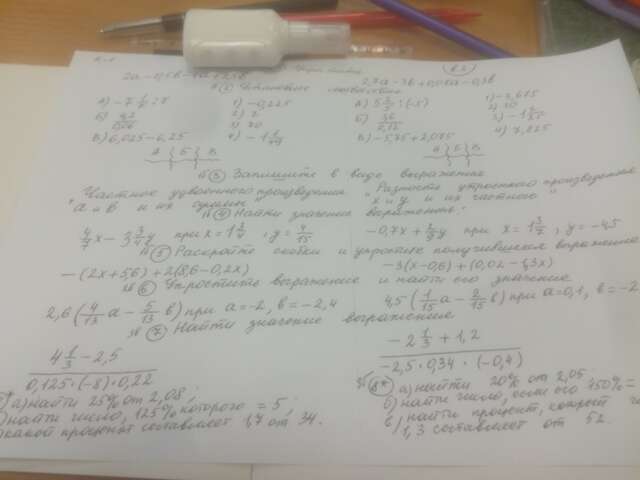 В-1
Упростить
В2
2а-0,5в- +2,5в
2,7а-3в+0,01а-0,3в
② Установите соответствие
А) -7 : 7
1) -0,225
Б)
2) 7
В) 6,025-6,25
3) 70
4) -1
А Б В
А) 5 : (-5)
1) -3,675
Б) 36
2) 30
В) -5,75+2,075
3) -1
4) 7,225
А Б В
③ Запишите в виде выражения
"Частное удвоенного произведения
а и в и их суммы"
"Разность утроенного произведения
х и у и их частного"
④ Найти значения выражения:
4/7 x - 3 3/4 y при x = 1 3/4, y = 4/15
-0,7x + y при x = 1 3/7, y = -4,5
⑤ Раскройте скобки и упростите получившееся выражение
-(2x+5,6)+2(8,6-0,2x)
-3(x-0,6)+(0,02-1,3x)
⑥ Упростите выражение и найти его значение
2,6(4/13 а - 5/13 в) при а=-2, в=-2,4
4,5(1/15 а - 2/15 в) при а=0,1, в=-2
⑦ Найти значение выражения
4 1/3 - 2,5
0,125·(-8)·0,22
-2 1/3 + 1,2
-2,5·0,34·(-0,4)
а) найти 25% от 2,08;
найти число, 125% которого = 5;
какой процент составляет 1,7 от 34.
⑧* а) найти 20% от 2,05
б) найти число, если его 150%=
в) найти процент, который
1,3 составляет от 52.